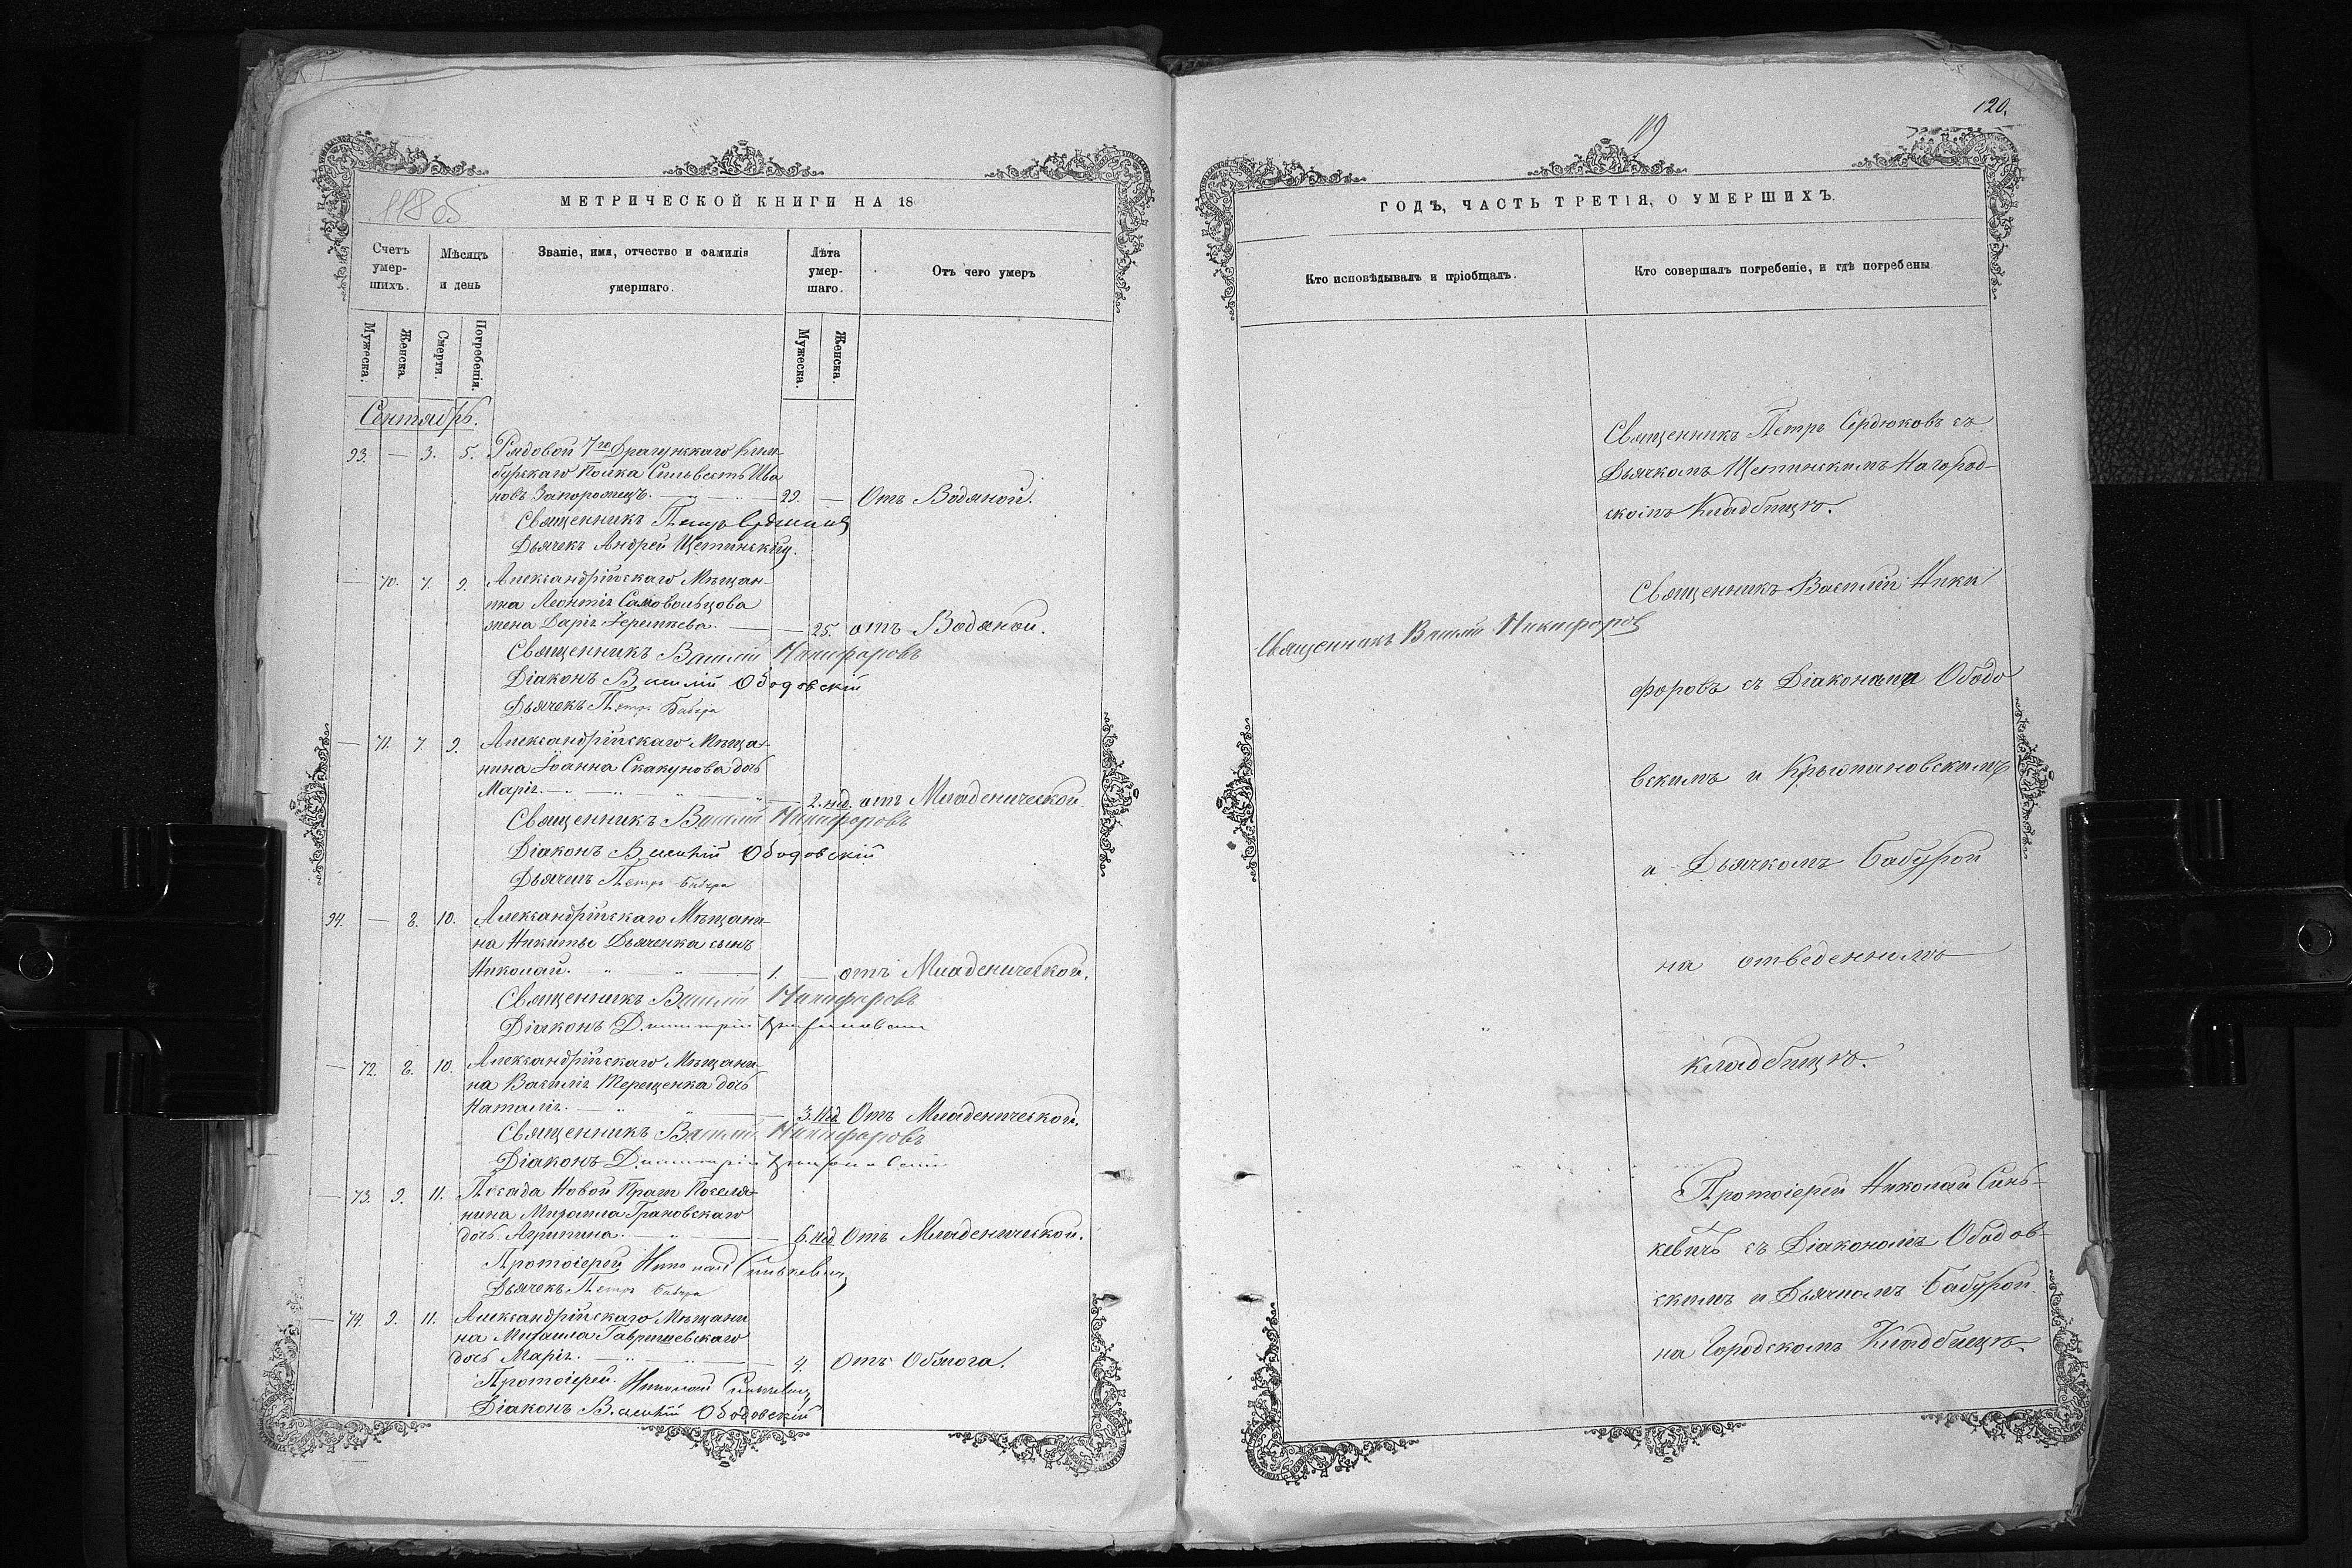 118 об
МЕТРИЧЕСКОЙ КНИГИ НА 18
Счетъ умер-шихъ.
Мѣсяцъ и день
Званіе, имя, отчество и фамилія умершаго.
Лѣта умер-шаго.
Отъ чего умеръ
Мужеска.
Женска.
Смерти.
Погребенія.
Мужеска.
Женска.
Сентябрь.
93. — 3. 5. Рядовой 7го Драгунскаго Кин-
бурскаго Полка Сильвестъ Ива
новъ Запорожецъ. — 29. — Отъ Водяной.
Священникъ Петръ Сердюковъ
Дьячекъ Андрей Щетинскій.
— 70. 7. 9. Александрійскаго Мѣщан-
ина Леонтія Самовольцова
жена Дарія — 25. отъ Водяной.
Священникъ Василій Никифоровъ
Діаконъ Василій Ободовскій
Дьячекъ Петръ Бабура
— 71. 7. 9. Александрійскаго Мѣща-
нина Іоанна Скакунова дочь
Марія. — 2. нед. отъ Младенической
Священникъ Василій Никифоровъ
Діаконъ Василій Ободовскій
Дьячекъ Петръ Бабура
94. — 8. 10. Александрійскаго Мѣщани-
на Никиты Дьяченка сынъ
Николай. — 1. — отъ Младенической.
Священникъ Василій Никифоровъ
Діаконъ Димитрій
— 72. 8. 10. Александрійскаго Мѣщани-
на Василія Терещенка дочь
Наталія. — 3. нед. Отъ Младенической.
Священникъ Василій Никифоровъ
Діаконъ Димитрій
— 73. 9. 11. Посада Новой Праги Поселя-
нина Михаила Грановскаго
дочь Агрипина. — 6. нед. Отъ Младенической.
Протоіерей Николай Синькевичъ
Дьячекъ Петръ Бабура
— 74. 9. 11. Александрійскаго Мѣщани
на Михаила Гавришевскаго
дочь Марія. — 4. Отъ Обжога.
Протоіерей Николай Синькевичъ
Діаконъ Василій Ободовскій
120.
119
ГОДЪ, ЧАСТЬ ТРЕТІЯ, О УМЕРШИХЪ.
Кто исповѣдывалъ и пріобщалъ.
Кто совершалъ погребеніе, и гдѣ погребены
Священникъ Петръ Сердюковъ съ
Дьячкомъ Щетинскимъ На город-
скомъ Кладбищѣ.
Священникъ Василій Ники
Священникъ Василій Никифоровъ
форовъ съ Діаконами Ободо
вскимъ и
и Дьячкомъ Бабурой
на отведенномъ
кладбищѣ.
Протоіерей Николай Синь-
кевичъ съ Діакономъ Ободов-
скимъ и Дьячкомъ Бабурой
на Городскомъ Кладбищѣ.